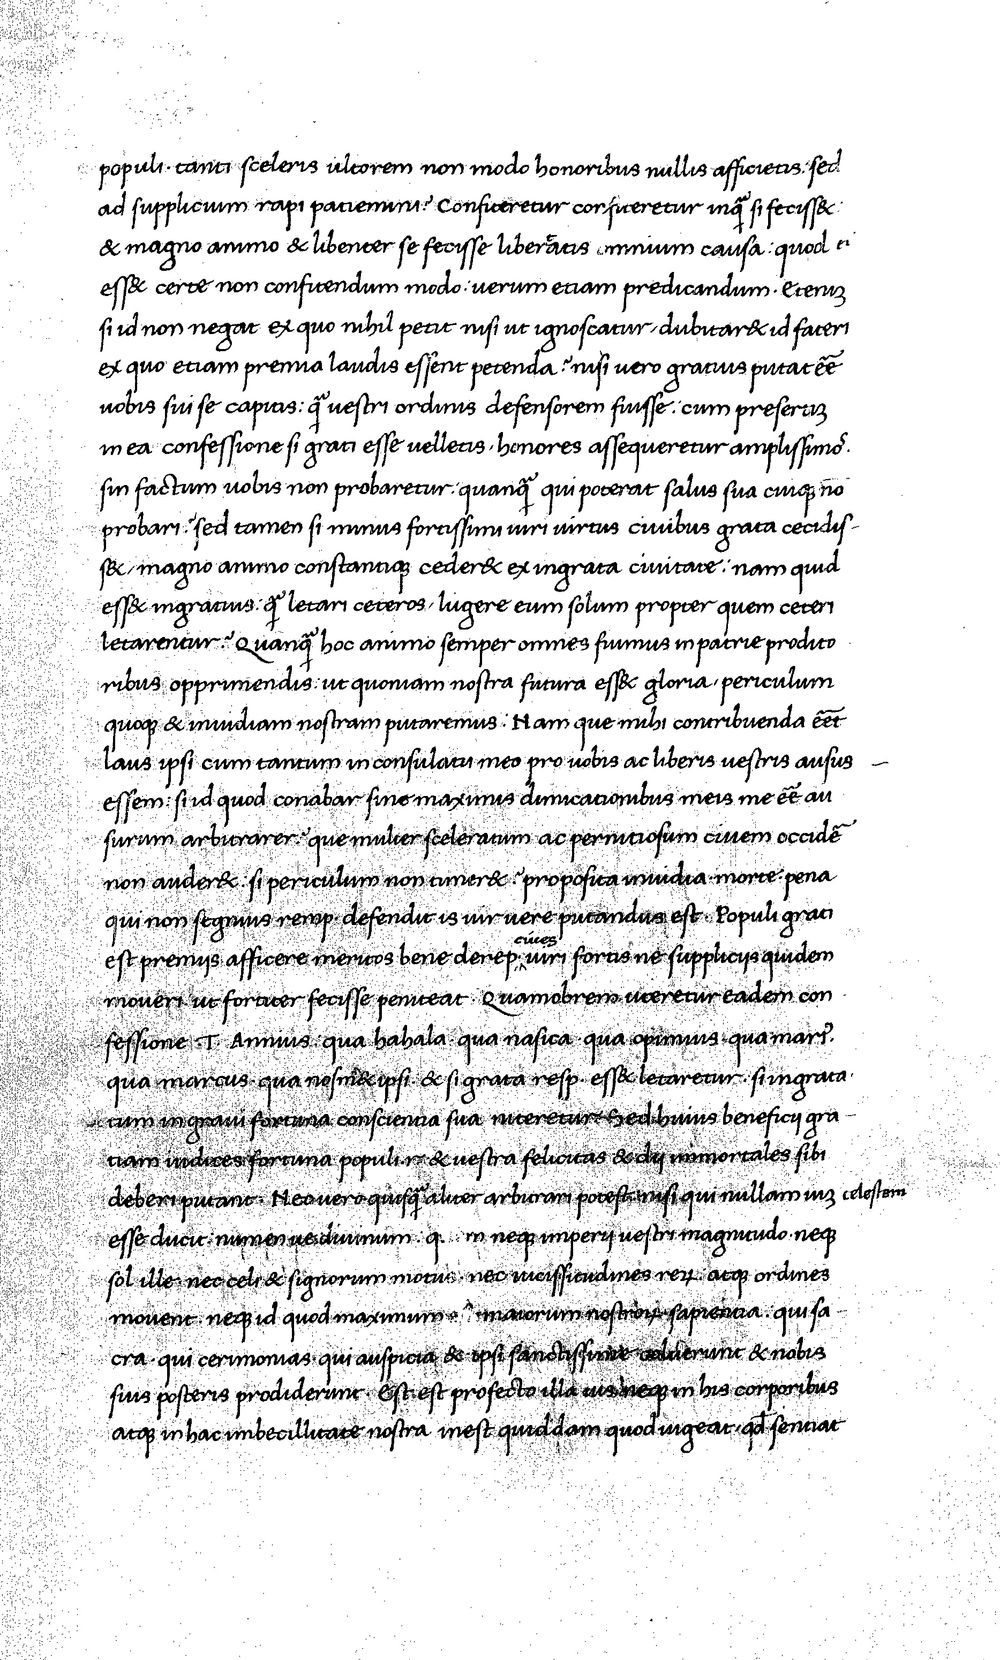 populi. tanti sceleris ultorem non modo honoribus nullis afficietis: sed
ad supplicium rapi patiemini? Confiteretur confiteretur inq̃ si feciss&:
& magno animo & libenter se fecisse libertatis omnium causa: quod ei
ess& certe non confitendum modo: uerum etiam predicandum. Eteniʒ
si id non negat ex quo nihil petit nisi ut ignoscatur, dubitar& id fateri
ex quo etiam premia laudis essent petenda? nisi uero gratius putat eẽ
uobis sui se capitis: q̃ uestri ordinis defensorem fuisse: cum presertiʒ
in ea confessione si grati esse uelletis, honores assequeretur amplissimoˢ.
sin factum uobis non probaretur: quanq̃ qui poterat salus sua cuiqȝ nõ
probari? sed tamen si minus fortissimi uiri uirtus ciuibus grata cecidis-
s&, magno animo constantiqȝ ceder& ex ingrata ciuitate: nam quid
ess& ingratius: q̃ letari ceteros, lugere eum solum propter quem ceteri
letarentur? Quanq̃ hoc animo semper omnes fuimus in patrie prodito
ribus opprimendis: ut quoniam nostra futura ess& gloria, periculum
quoqȝ & inuidiam nostram putaremus: Nam que mihi contribuenda eẽt
laus ipsi cum tantum in consulatu meo pro uobis ac liberis uestris ausus
essem: si id quod conabar sine maximis dimicationibus meis me eẽ au
surum arbitrarer? que mulier sceleratum ac pernitiosum ciuem occidẽ
non auder& si periculum non timer&? proposita inuidia morte pena
qui non segnius remp. defendit is uir uere putandus est. Populi grati
est premijs afficere meritos bene de rep. ciues uiri fortis ne supplicijs quidem
moueri ut fortiter fecisse peniteat. Quamobrem uteretur eadem con
fessione .T. Annius: qua hahala qua nasica qua opimius. qua mariˀ.
qua marcus qua nosm& ipsi & si grata resp. ess& letaretur. si ingrata.
tum in graui fortuna conscientia sua niteretur. Sed huius beneficij gra-
tiam iudices fortuna populi .r. & uestra felicitas & dij immortales sibi
deberi putant. Nec uero quisq̃ aliter arbitrari potest: nisi qui nullam uiʒ celestem
esse ducit numen ue diuinum. q. m neqȝ imperij uestri magnitudo. neqȝ
sol ille nec celi & signorum motus nec uicissitudines reꝝ atqȝ ordines
mouent. neqȝ id quod maximum maiorum nostroꝝ sapientia. qui sa
cra. qui cerimonias qui auspicia & ipsi sanctissime coluerunt & nobis
suis posteris prodiderunt. Est est profecto illa uis neqȝ in his corporibus
atqȝ in hac imbecillitate nostra inest quiddam quod uigeat, qd̃ sentiat